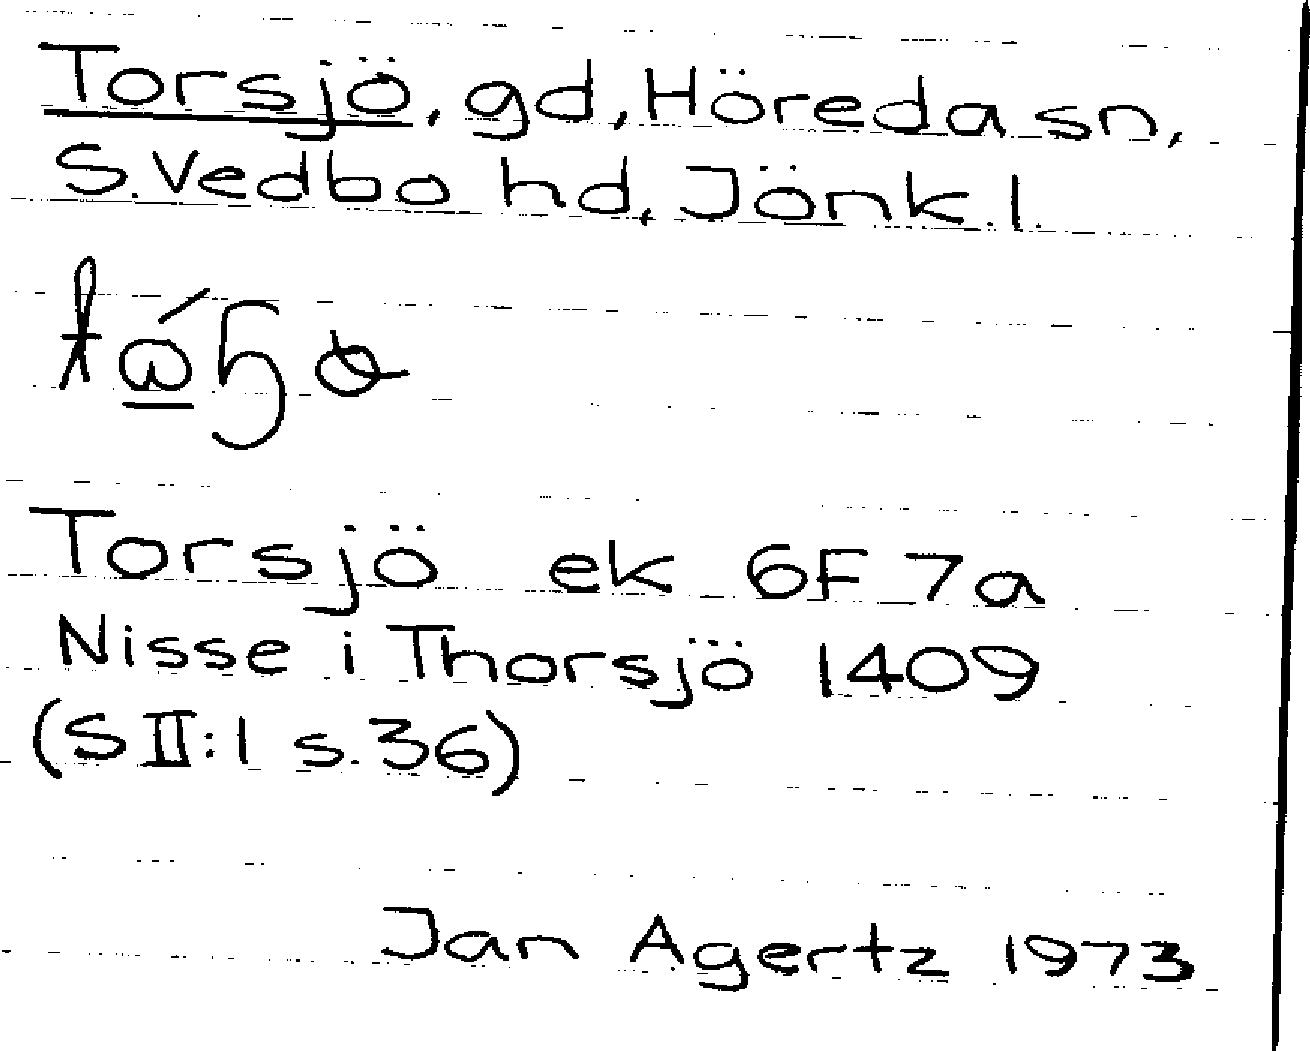 Torsjö, gd, Höreda sn,
S. Vedbo hd, Jönk. l.
Torsjö ek 6F 7a
Nisse i Thorsjö 1409
(S II:1 s. 36)
Jan Agertz 1973